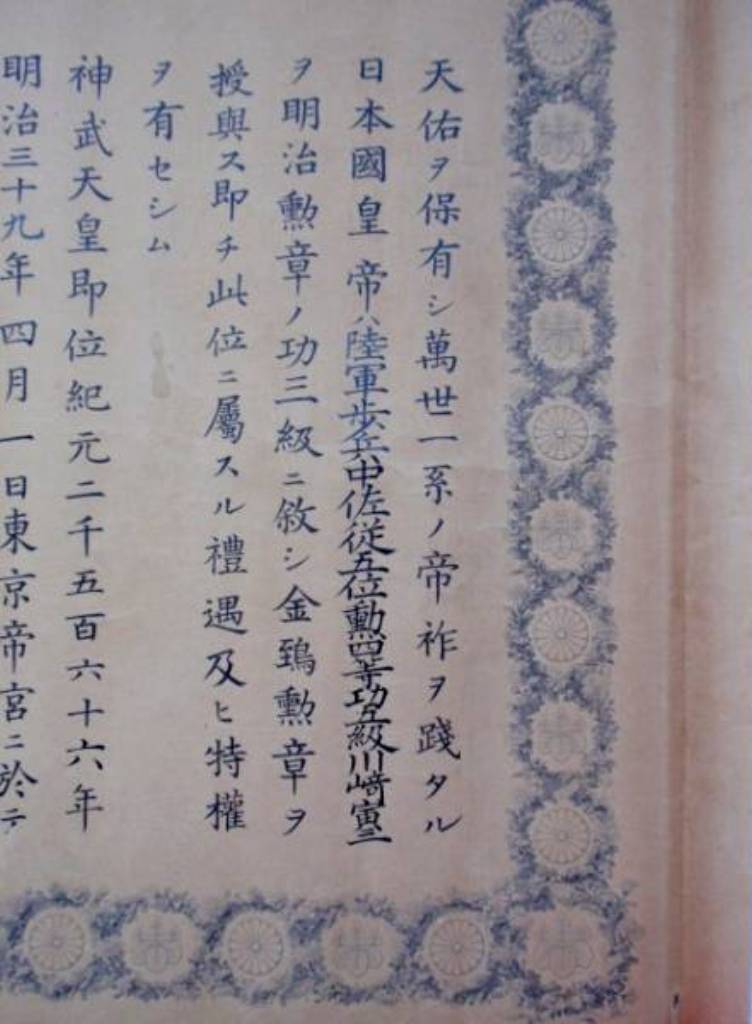 天佑ヲ保有シ萬世一系ノ帝祚ヲ踐タル
日本國皇帝ハ陸軍歩兵中佐従五位勲四等功五級川﨑寅三
ヲ明治勲章ノ功三級ニ敘シ金鵄勲章ヲ
授與ス即チ此位ニ屬スル禮遇及ヒ特權
ヲ有セシム
神武天皇即位紀元二千五百六十六年
明治三十九年四月一日東京帝宮ニ於テ